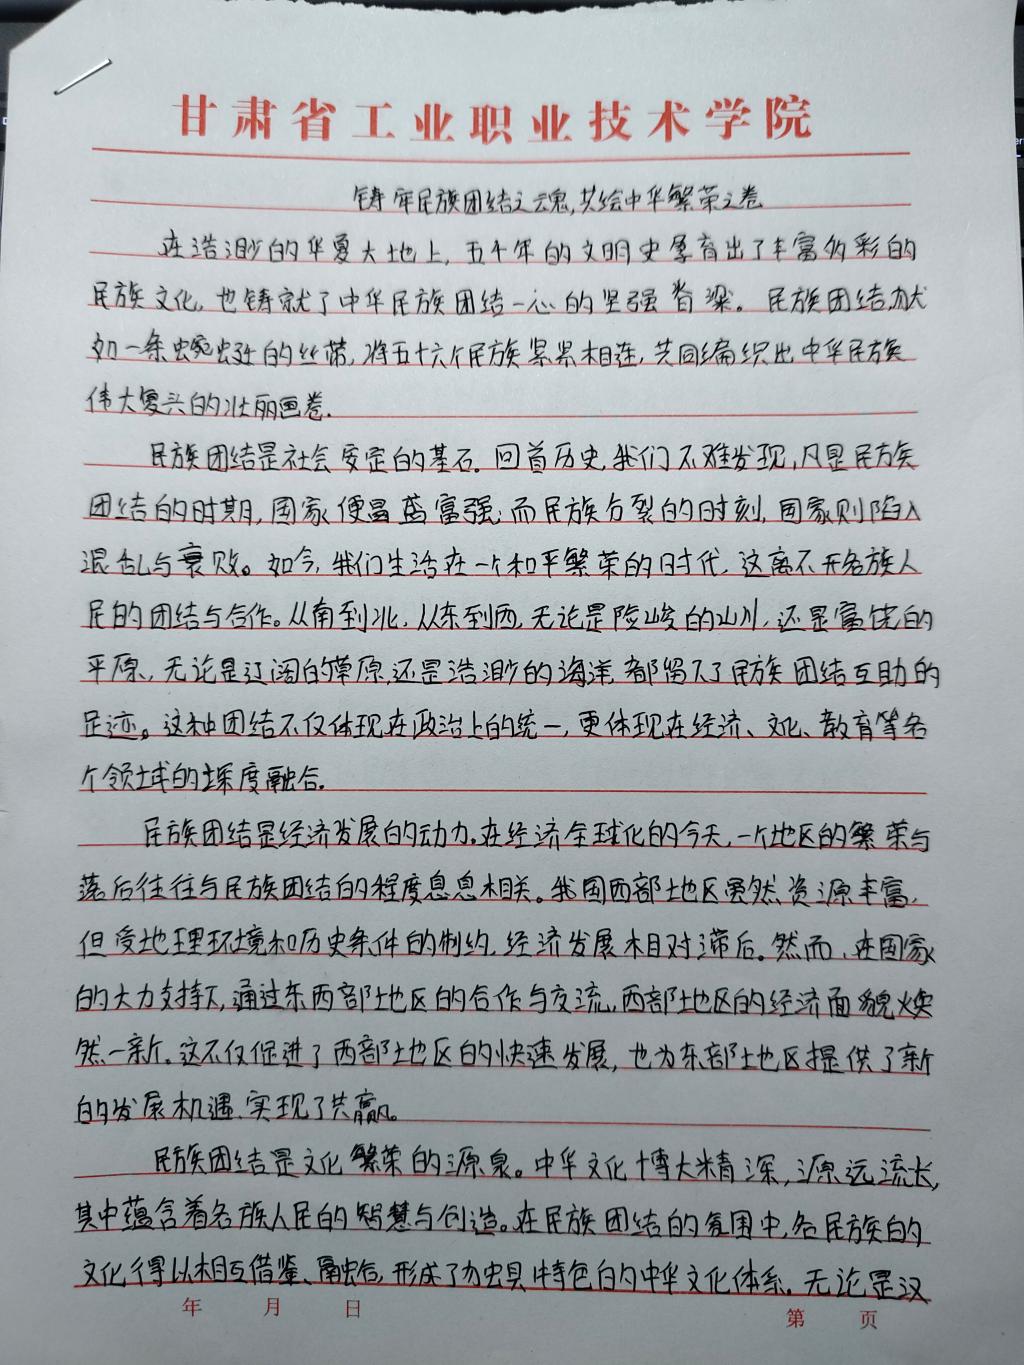 甘肃省工业职业技术学院
铸牢民族团结之魂,共绘中华繁荣之卷
在浩渺的华夏大地上,五千年的文明史孕育出了丰富多彩的
民族文化,也铸就了中华民族团结一心的坚强脊梁。民族团结,犹
如一条蜿蜒的丝带,将五十六个民族紧紧相连,共同编织出中华民族
伟大复兴的壮丽画卷.
民族团结是社会安定的基石。回首历史,我们不难发现,凡是民族
团结的时期,国家便昌盛富强;而民族分裂的时刻,国家则陷入
混乱与衰败。如今,我们生活在一个和平繁荣的时代,这离不开各族人
民的团结与合作。从南到北,从东到西,无论是险峻的山川,还是富饶的
平原,无论是辽阔的草原,还是浩渺的海洋,都留下了民族团结互助的
足迹。这种团结不仅体现在政治上的统一,更体现在经济、文化、教育等各
个领域的深度融合.
民族团结是经济发展的动力。在经济全球化的今天,一个地区的繁荣与
落后往往与民族团结的程度息息相关。我国西部地区虽然资源丰富,
但受地理环境和历史条件的制约,经济发展相对滞后。然而,在国家
的大力支持下,通过东西部地区的合作与交流,西部地区的经济面貌焕
然一新。这不仅促进了西部地区的快速发展,也为东部地区提供了新
的发展机遇,实现了共赢。
民族团结是文化繁荣的源泉。中华文化博大精深,源远流长,
其中蕴含着各族人民的智慧与创造。在民族团结的氛围中,各民族的
文化得以相互借鉴、融合,形成了独具特色的中华文化体系。无论是汉
年 月 日
第 页